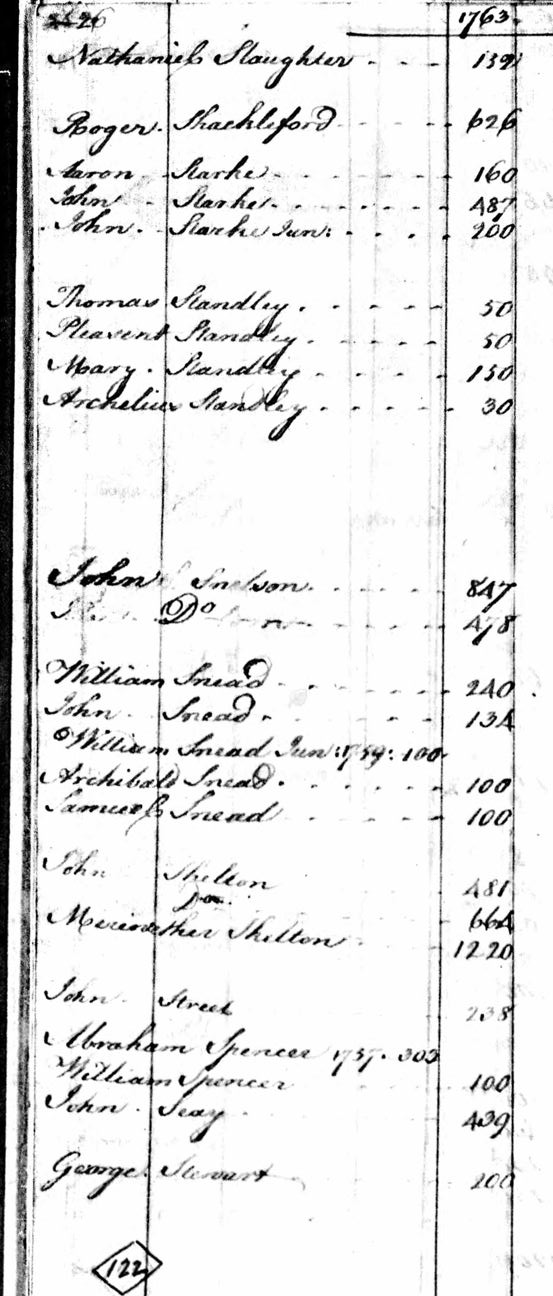 1763.
Nathaniel Slaughter - - - 139
Roger. Shackleford - - - - 626
Aaron - Starke - - - - - - 160
John - Starke - - - - - - 487
John - Starke Junr - - - - 200
Thomas Standley - - - - - 50
Pleasent Standley - - - - - 50
Mary - Standley - - - - - 150
Archelius Standley - - - - - 30
John Snelson - - - - - 847
Do - - - 478
William Snead - - - - - 240
John - Snead - - - - - 134
William Snead Jun: 1759: 100
Archibald Snead - - - - - 100
Samuel Snead - - - - 100
John Shelton 481
Do 664
Meriwether Shelton 1220
John - Street 238
Abraham Spencer 1757. 303
William Spencer 100
John - Seay 439
George. Stewart 200
122